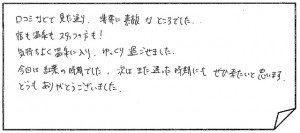 口コミなどで見た通り、非常に素敵なところでした。
宿も温泉もスタッフの方も!
気持ちよく温泉に入り、ゆっくり過ごせました。
今回は紅葉の時期でした。次はまた違った時期にもぜひ来たいと思います。
どうもありがとうございました。